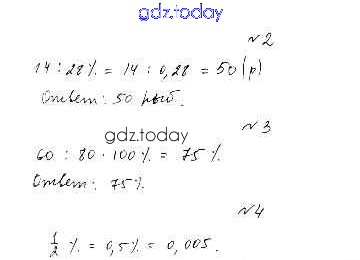 gdz.today
№2
14 : 28% = 14 : 0,28 = 50 (р)
Ответ: 50 рыб.
gdz.today
№3
60 : 80 · 100% = 75%.
Ответ: 75%.
№4
1/2 % = 0,5% = 0,005.